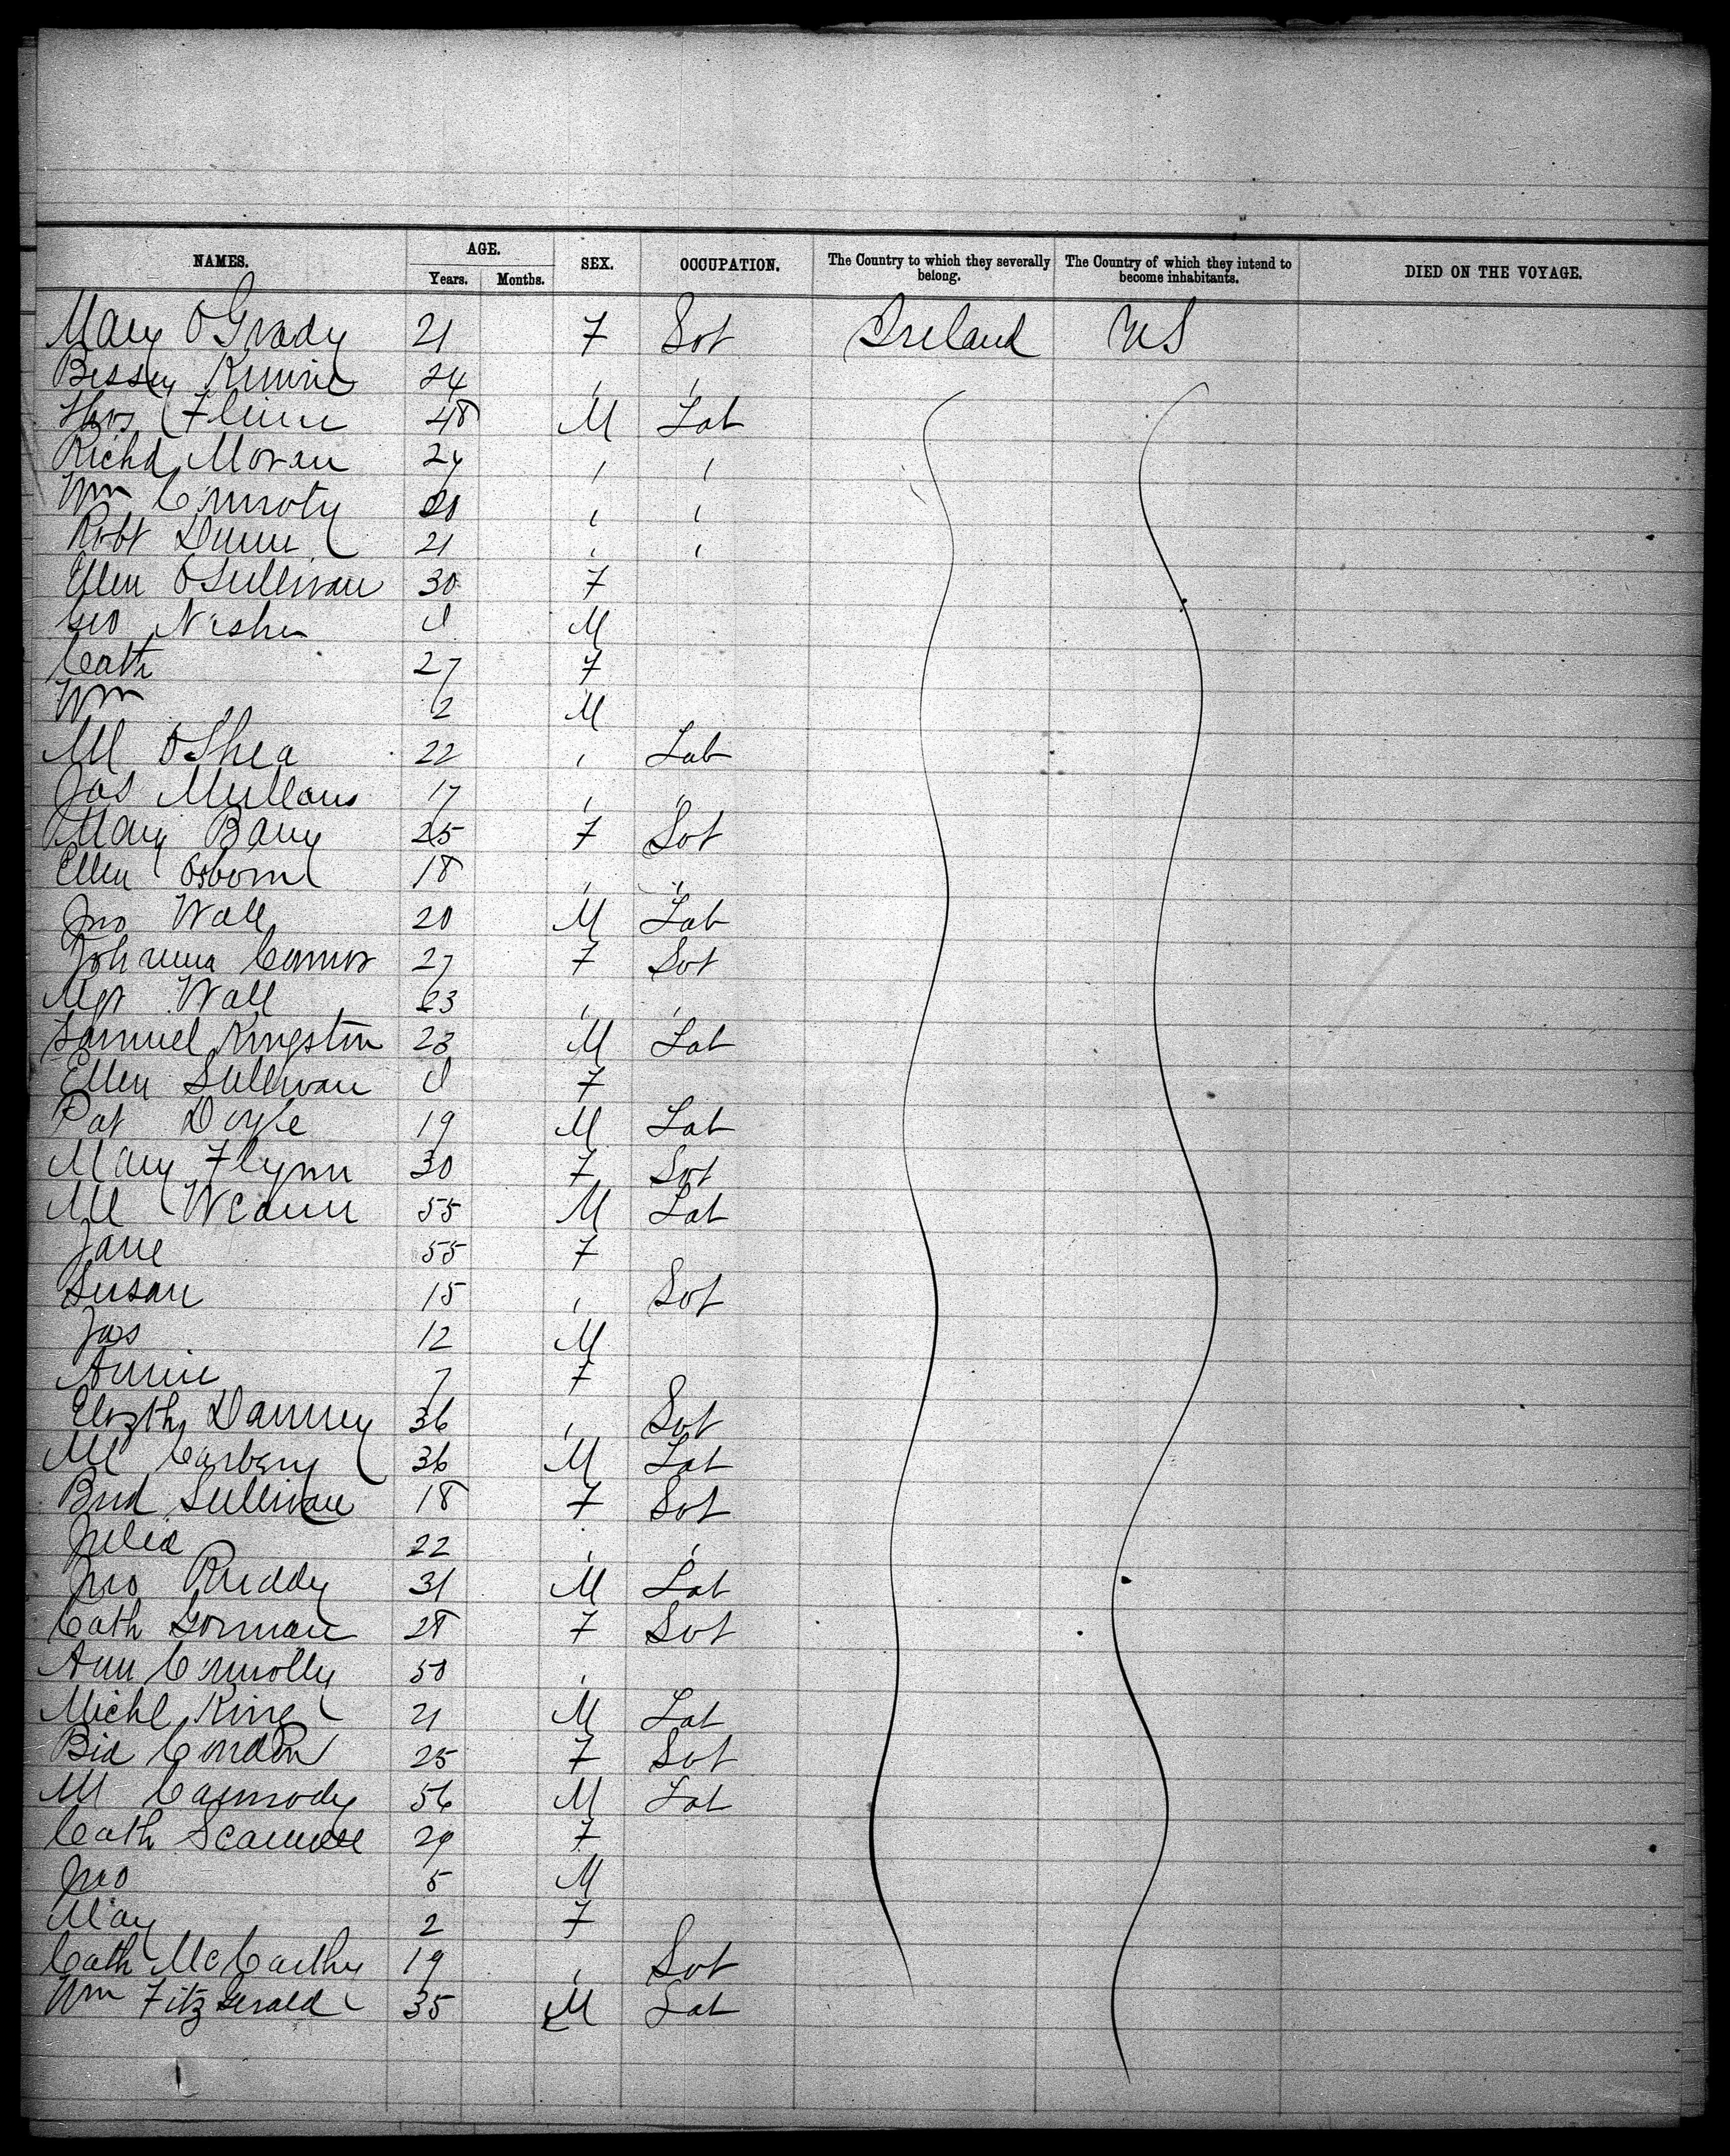 NAMES. AGE. SEX. OCCUPATION. The Country to which they severally belong. The Country of which they intend to become inhabitants. DIED ON THE VOYAGE.
Years. Months.
Mary OGrady 21 F Svt Ireland US
Bessy 24 , ,
Thos Flinn 48 M Lab
Richd Moran 24 , ,
Wm Connoty 20 , ,
Robt Dunn 21 , ,
Ellen OSullivan 30 F
Geo M
Cath 27 F
Wm 2 M
Ml OShea 22 , Lab
Jas Mullans 17 , "
Mary Barry 25 F Svt
Ellen Osborne 18 , "
Jno Wall 20 M Lab
Johanna Connor 27 F Svt
Mgt Wall 23 , ,
Samuel Kingston 23 M Lab
Ellen Sullivan F
Pat Doyle 19 M Lab
Mary Flynn 30 F Svt
Ml 55 M Lab
Jane 55 F
Susan 15 , Svt
Jas 12 M
Annie 7 F
Elizth 36 , Svt
Ml Carbery 36 M Lab
Brid Sullivan 18 F Svt
Julia 22 , ,
Jno Ruddy 31 M Lab
Cath Gorman 28 F Svt
Ann Connolly 50 ,
Michl King 21 M Lab
Bid Condon 25 F Svt
Ml Carmody 56 M Lab
Cath 29 F
Jno 5 M
May 2 F
Cath McCarthy 19 , Svt
Wm FitzGerald 35 M Lab